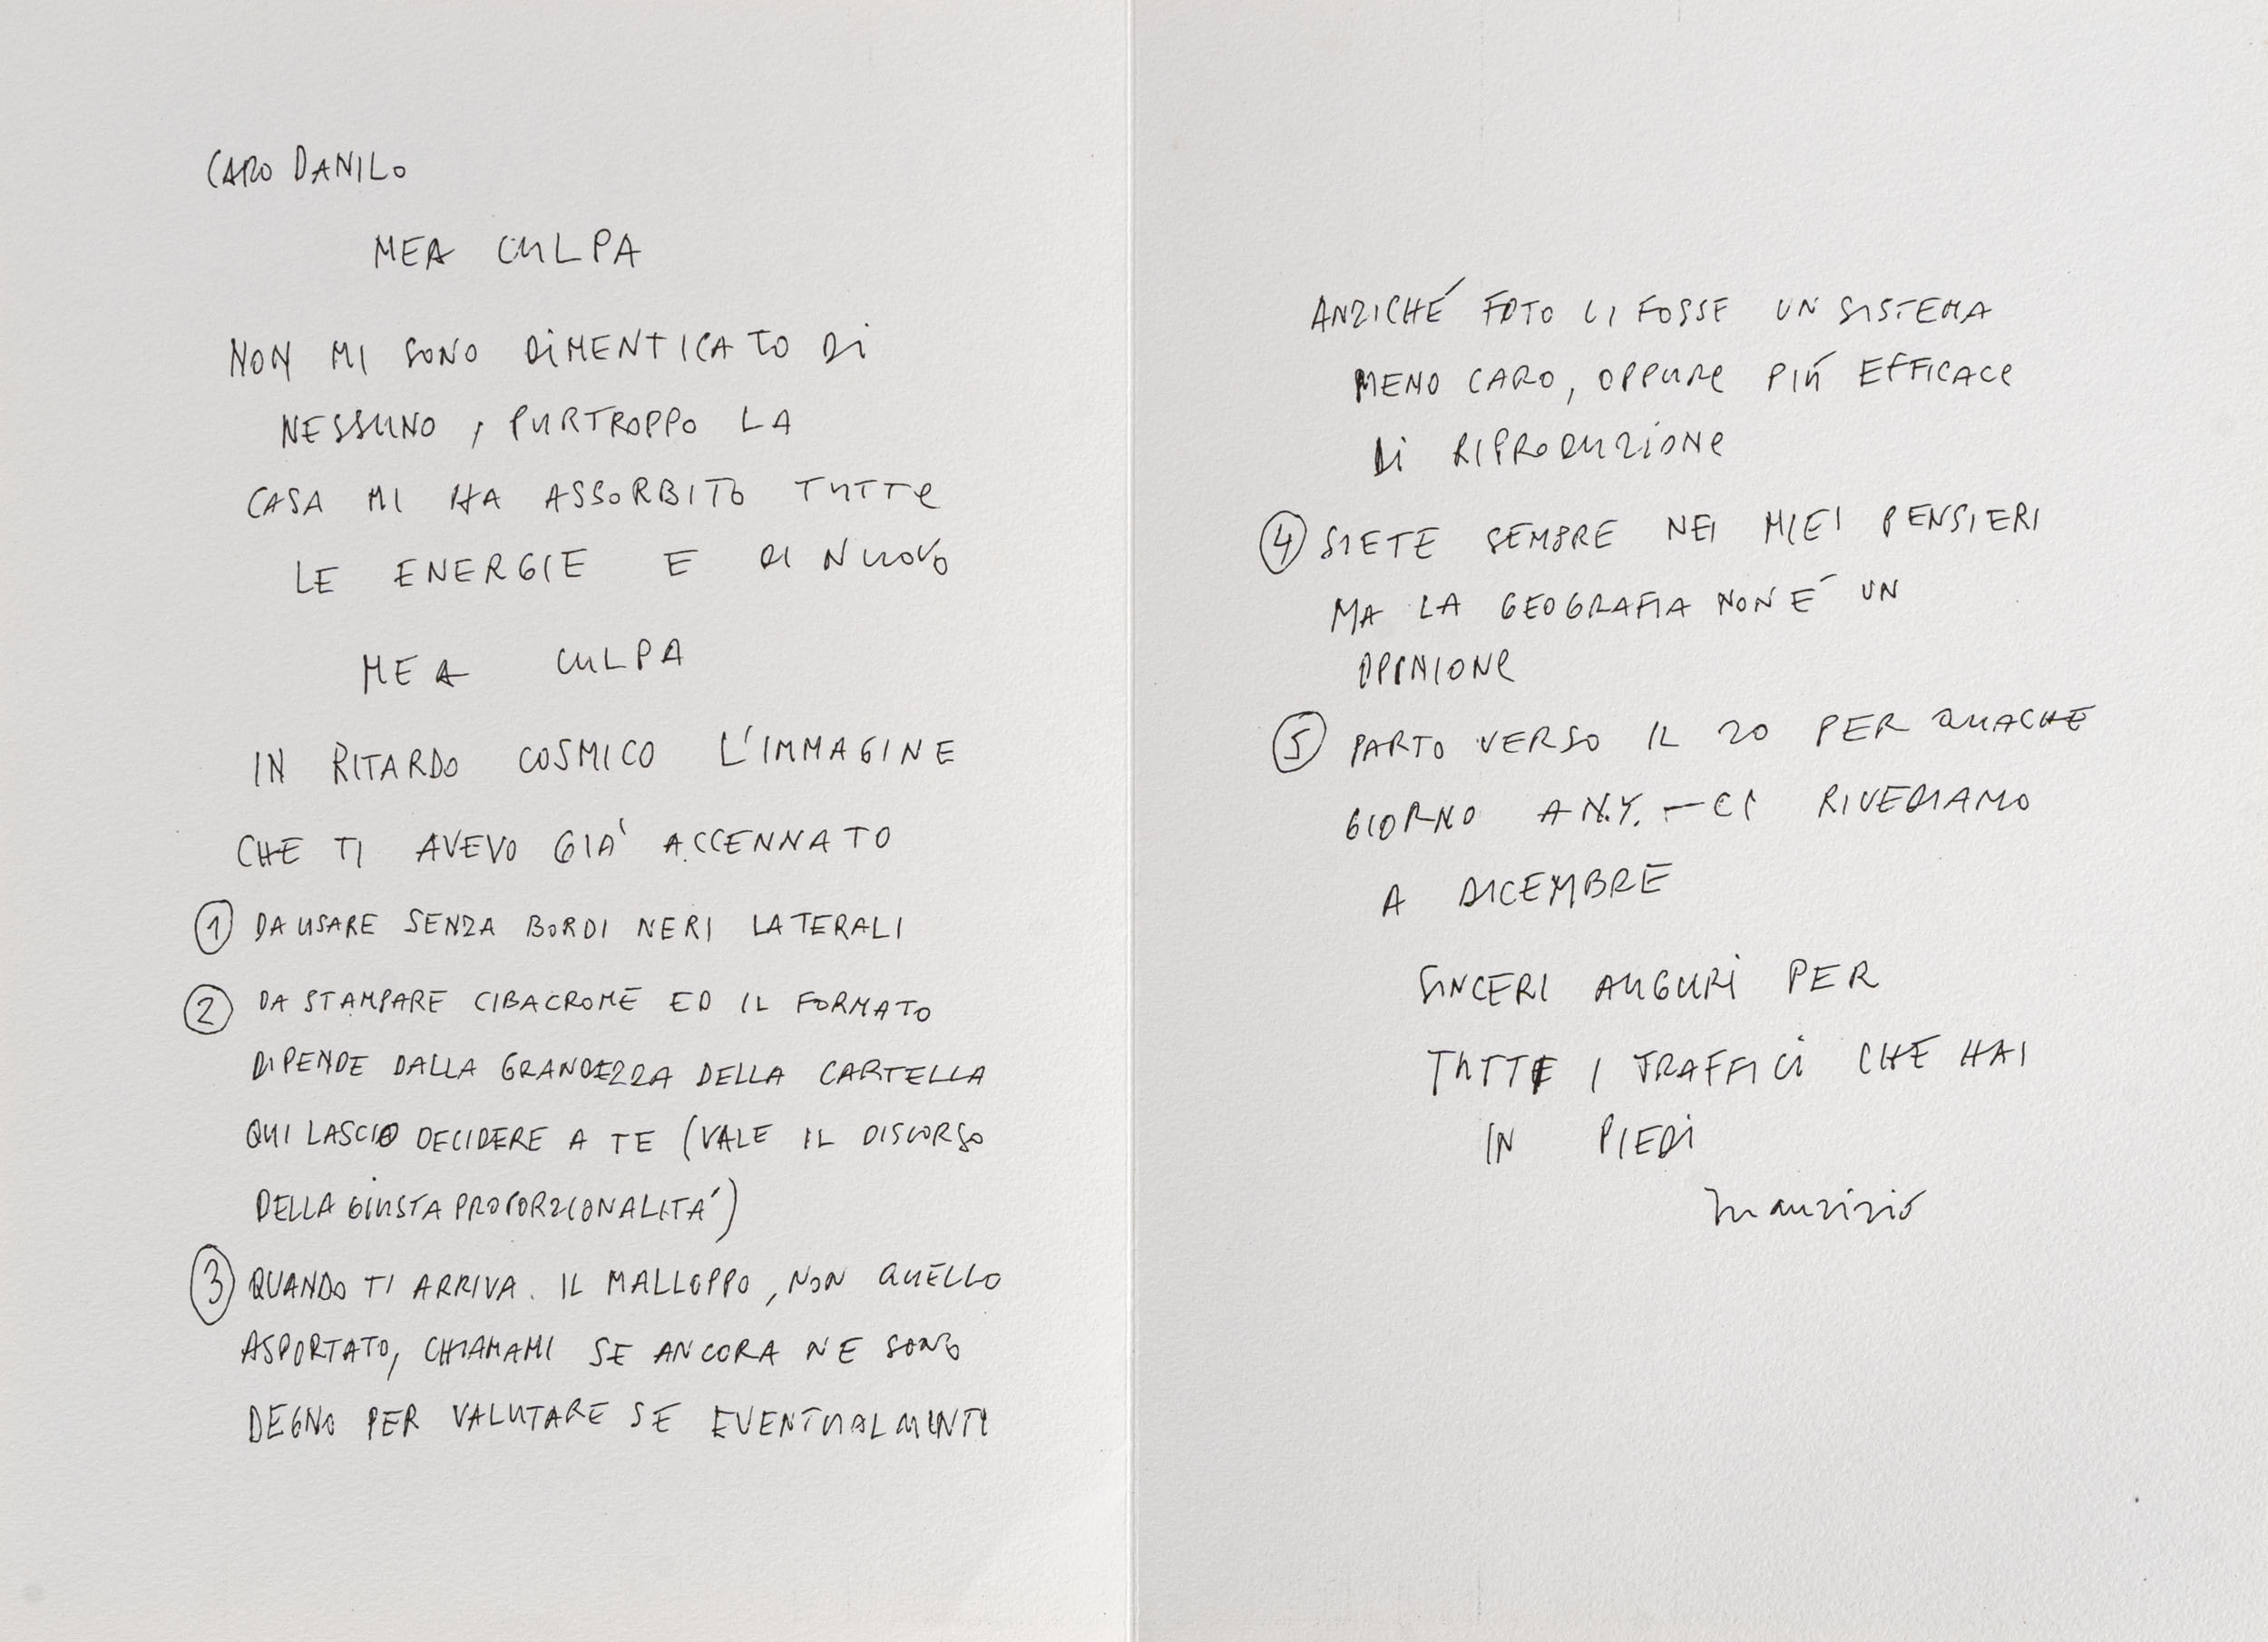 CARO DANILO
MEA CULPA
NON MI SONO DIMENTICATO DI
NESSUNO, PURTROPPO LA
CASA MI HA ASSORBITO TUTTE
LE ENERGIE E DI NUOVO
MEA CULPA
IN RITARDO COSMICO L'IMMAGINE
CHE TI AVEVO GIA' ACCENNATO
① DA USARE SENZA BORDI NERI LATERALI
② DA STAMPARE CIBACROME ED IL FORMATO
DIPENDE DALLA GRANDEZZA DELLA CARTELLA
QUI LASCIO DECIDERE A TE (VALE IL DISCORSO
DELLA GIUSTA PROPORZIONALITA')
③ QUANDO TI ARRIVA. IL MALLOPPO, NON QUELLO
ASPORTATO, CHIAMAMI SE ANCORA NE SONO
DEGNO PER VALUTARE SE EVENTUALMENTE
ANZICHÉ FOTO CI FOSSE UN SISTEMA
MENO CARO, OPPURE PIÚ EFFICACE
DI RIPRODUZIONE
④ SIETE SEMPRE NEI MIEI PENSIERI
MA LA GEOGRAFIA NON É UN
OPINIONE
⑤ PARTO VERSO IL 20 PER QUACHE
GIORNO A N.Y. – CI RIVEDIAMO
A DICEMBRE
SINCERI AUGURI PER
TUTTI I TRAFFICI CHE HAI
IN PIEDI
Maurizio